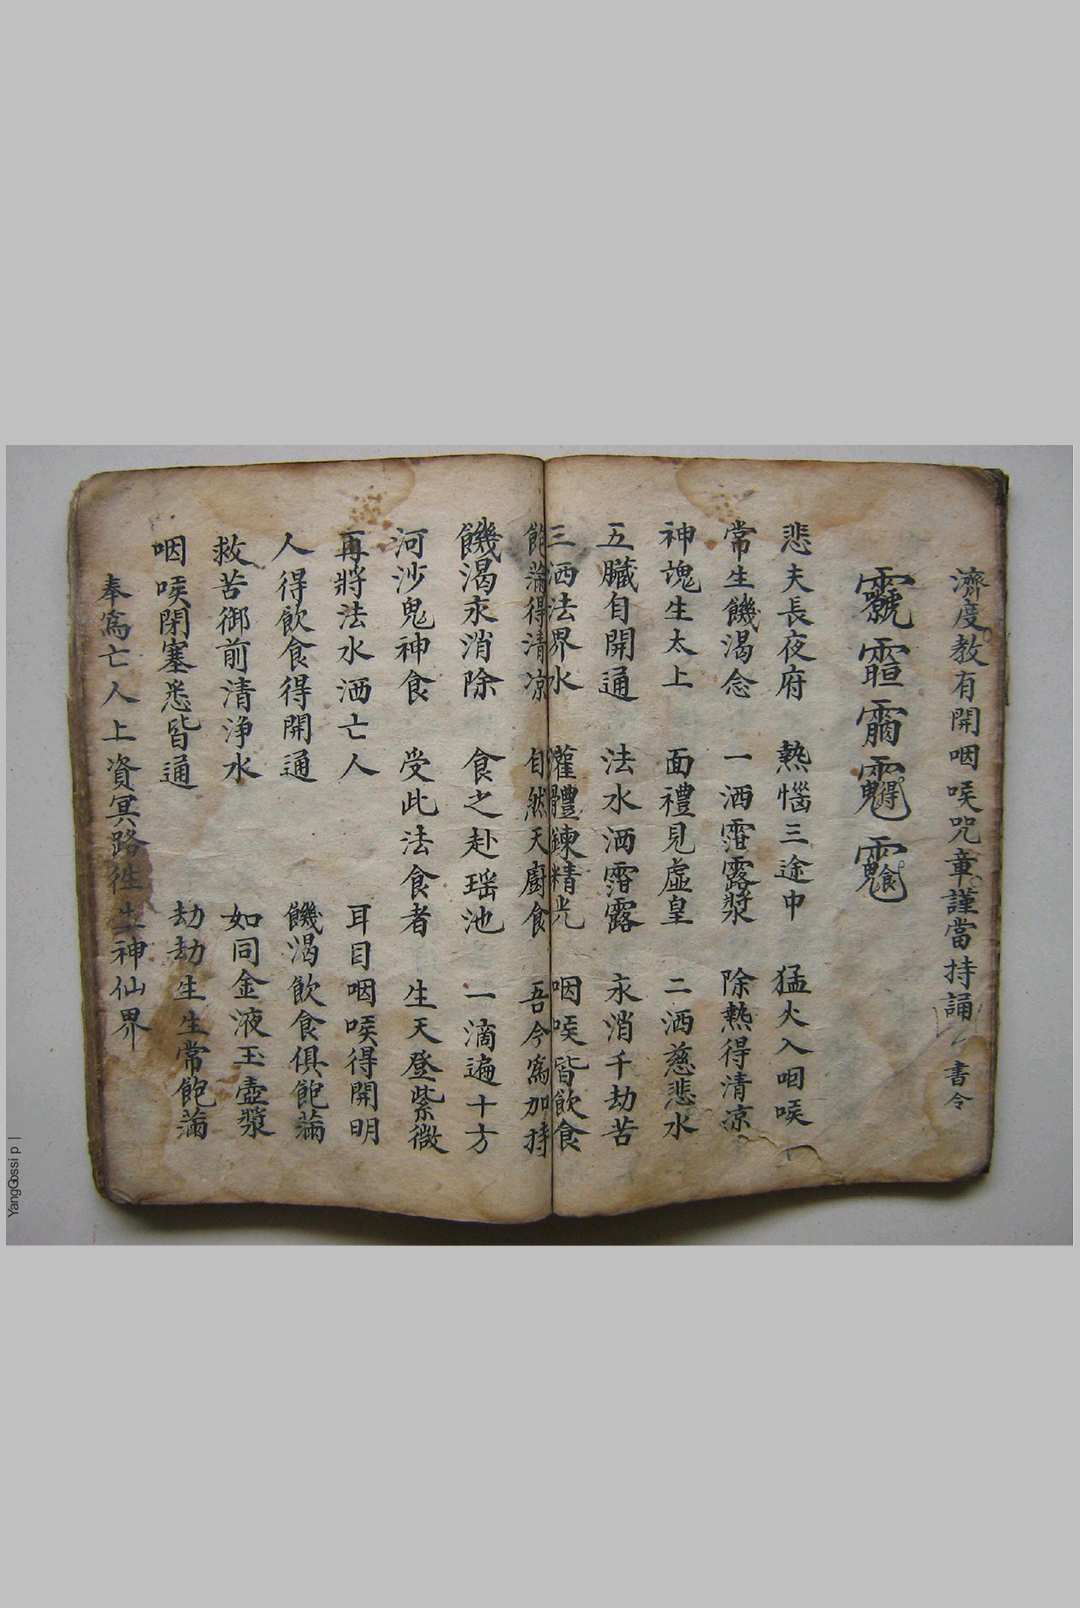 濟度教有開咽喉咒章謹當持誦 書令
悲夫長夜府 熱惱三途中 猛火入咽喉
常生饑渴念 一洒霑露漿 除熱得清凉
神魂生太上 面禮見虛皇 二洒慈悲水
五臟自開通 法水洒霑露 永消千劫苦
三洒法界水 灌體鍊精光 咽喉皆飲食
飽滿得清凉 自然天廚食 吾今為加持
饑渴永消除 食之赴瑶池 一滴遍十方
河沙鬼神食 受此法食者 生天登紫微
再將法水洒亡人 耳目咽喉得開明
人得飲食得開通 饑渴飲食俱飽滿
救苦御前清浄水 如同金液玉壺漿
咽喉閉塞悉皆通 劫劫生生常飽滿
奉為亡人上資冥路徃生神仙界
YangGossip